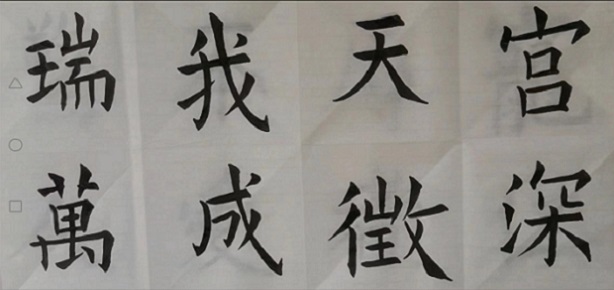 宫深
天徵
我成
瑞萬